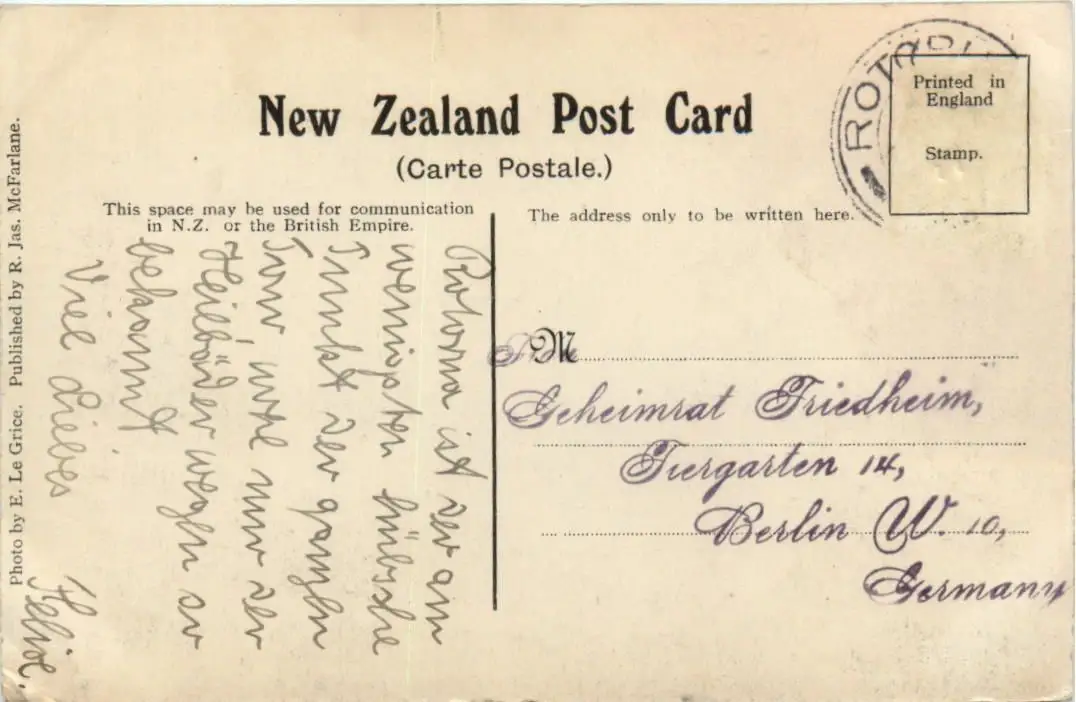 New Zealand Post Card
(Carte Postale.)
Printed in
England
Stamp.
This space may be used for communication
in N.Z. or the British Empire.
Rotorua ist der am
wenigsten hübsche
Punkt der ganzen
Tour, wohl nur der
Heilbäder wegen so
bekannt
Viel Liebes
Photo by E. Le Grice. Published by R. Jas. McFarlane.
The address only to be written here.
M
Frau
Geheimrat Friedheim,
Tiergarten 14,
Berlin W. 10,
Germany